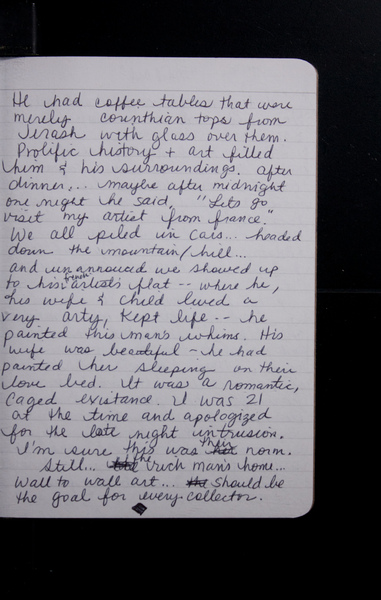 He had coffee tables that were
merely corinthian tops from
Jerash with glass over them.
Prolific history + art filled
him & his surroundings. After
dinner,.. maybe after midnight
one night he said, "Lets go
visit my artist from france."
We all piled in cars... headed
down the mountain/hill...
and unannouced we showed up
to his french artist's flat -- where he,
his wife & child lived a
very arty, kept life -- he
painted this man's whims. His
wife was beautiful - he had
painted her sleeping on their
love bed. It was a romantic,
caged existance. I was 21
at the time and apologized
for the late night intrusion.
I'm sure this was their norm.
Still... the rich man's home...
Wall to wall art... should be
the goal for every collector.